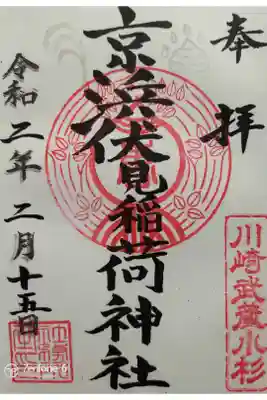 奉拝
京浜伏見稲荷神社
川崎武蔵小杉
令和三年二月十五日
Zenfone 6